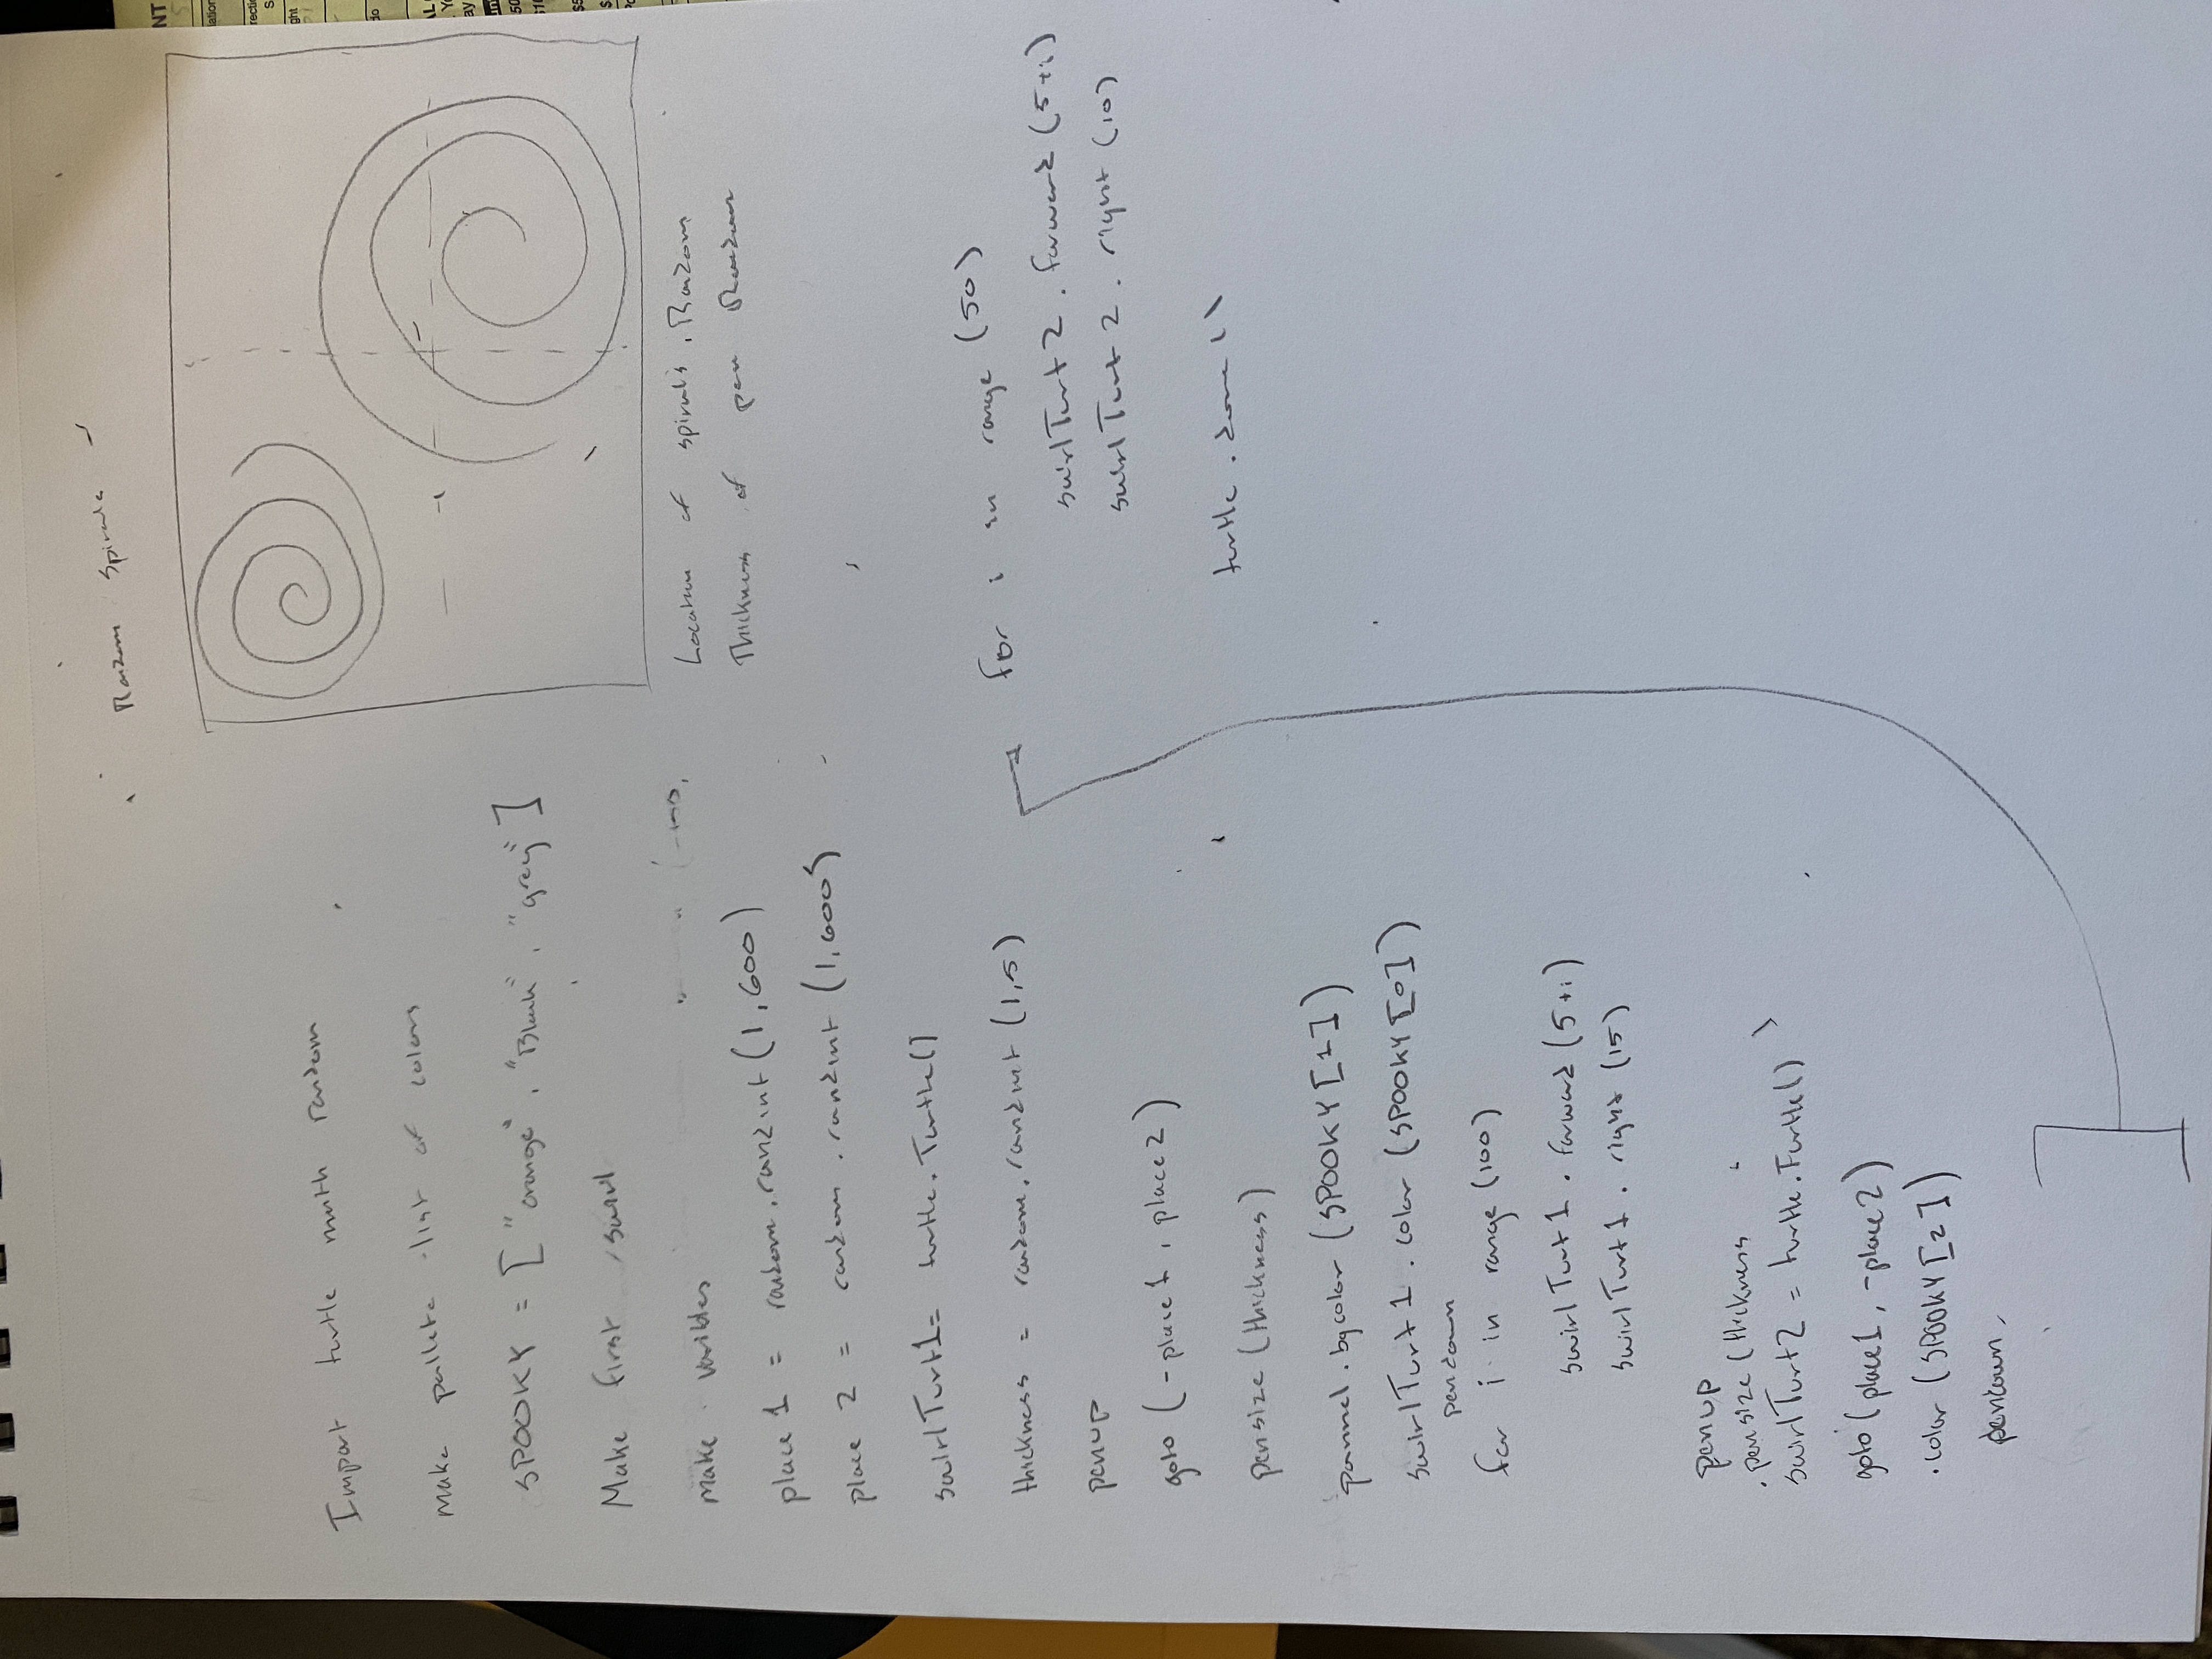 Random Spirals
Import turtle math random
Make pallete list of colors
SPOOKY = ["orange", "Black", "grey"]
Make first swirl
make varibles
place 1 = random.randint (1,600)
place 2 = random.randint (1,600)
swirlTurt1= turtle.Turtle()
thickness = random.randint (1,5)
penup
goto (-place1, place2)
pensize (thickness)
pannel.bgcolor (SPOOKY[1])
swirlTurt1.color (SPOOKY[0])
pendown
for i in range (100)
swirlTurt1.forward (5+i)
swirlTurt1.right (15)
penup
.pensize (thickness
swirlTurt2 = turtle.Turtle()
goto (place1, -place2)
.color (SPOOKY[2])
pendown
Location of spirals, Random
Thickness of pen Random
for i in range (50)
swirlTurt2.forward (5+i)
swirlTurt2.right (10)
turtle.done()